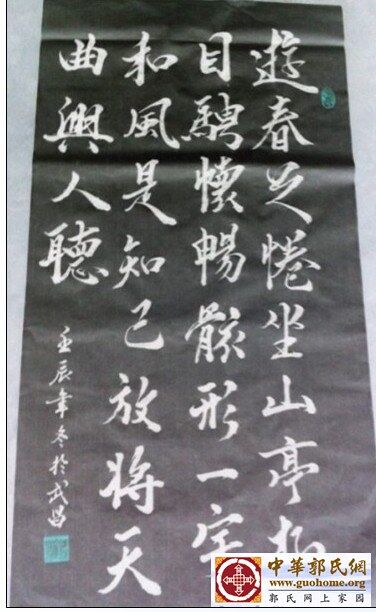 遊春足惓坐山亭極
目騁懷暢骸形一定
和風是知己放將天
曲與人聽
壬辰年冬於武昌
中華郭氏網
www.guohome.org
郭氏网上家园